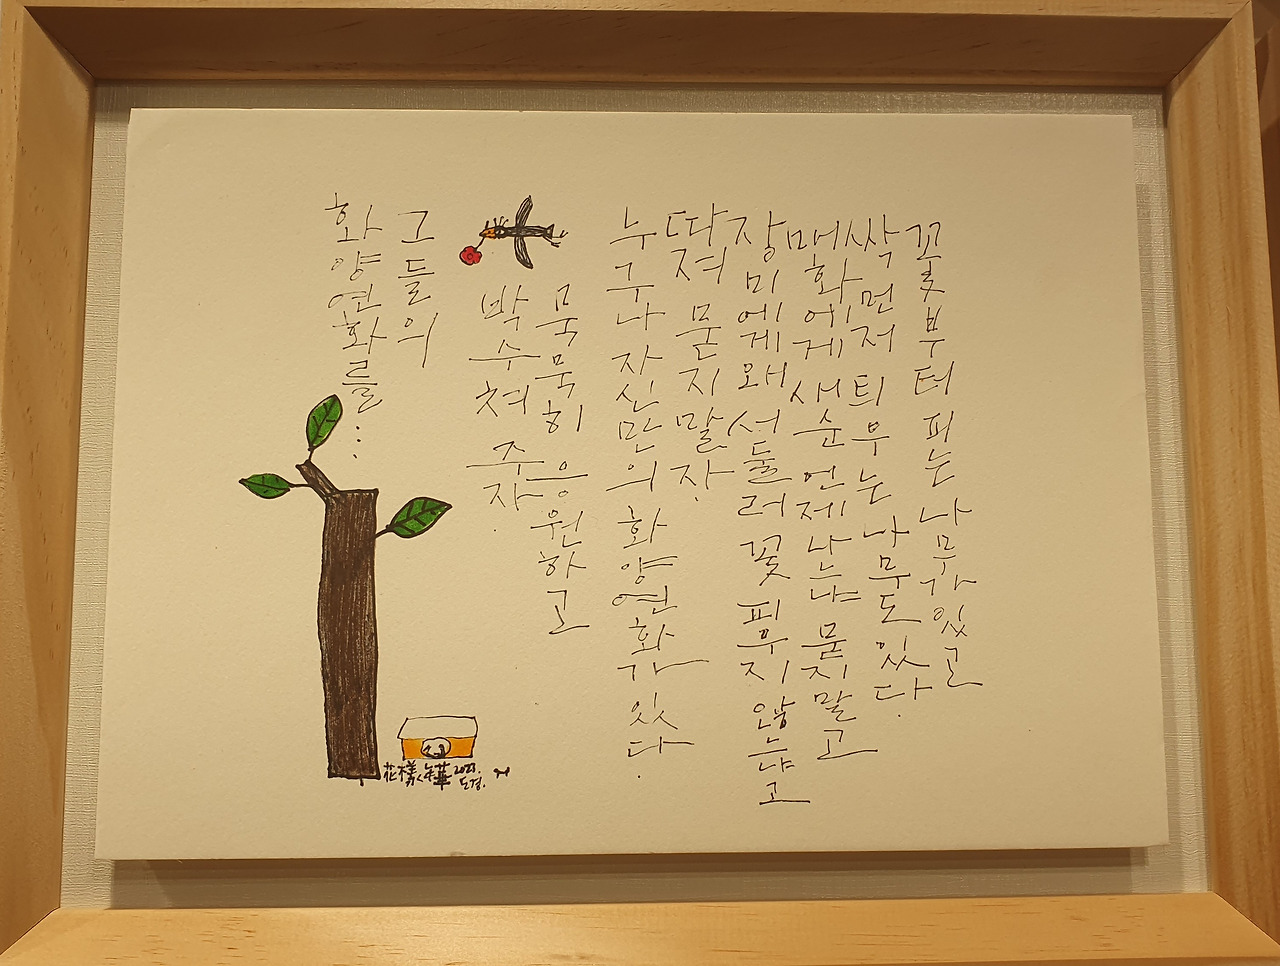 꽃부터 피는 나무가 있고
싹 먼저 틔우는 나무도 있다.
매화에게 새순 언제 나느냐 묻지말고
장미에게 왜 서둘러 꽃 피우지 않느냐고
따져 묻지 말자.
누구나 자신만의 화양연화가 있다.
묵묵히 응원하고
박수쳐 주자.
그들의
화양연화를...
花樣年華 2021.
도경.